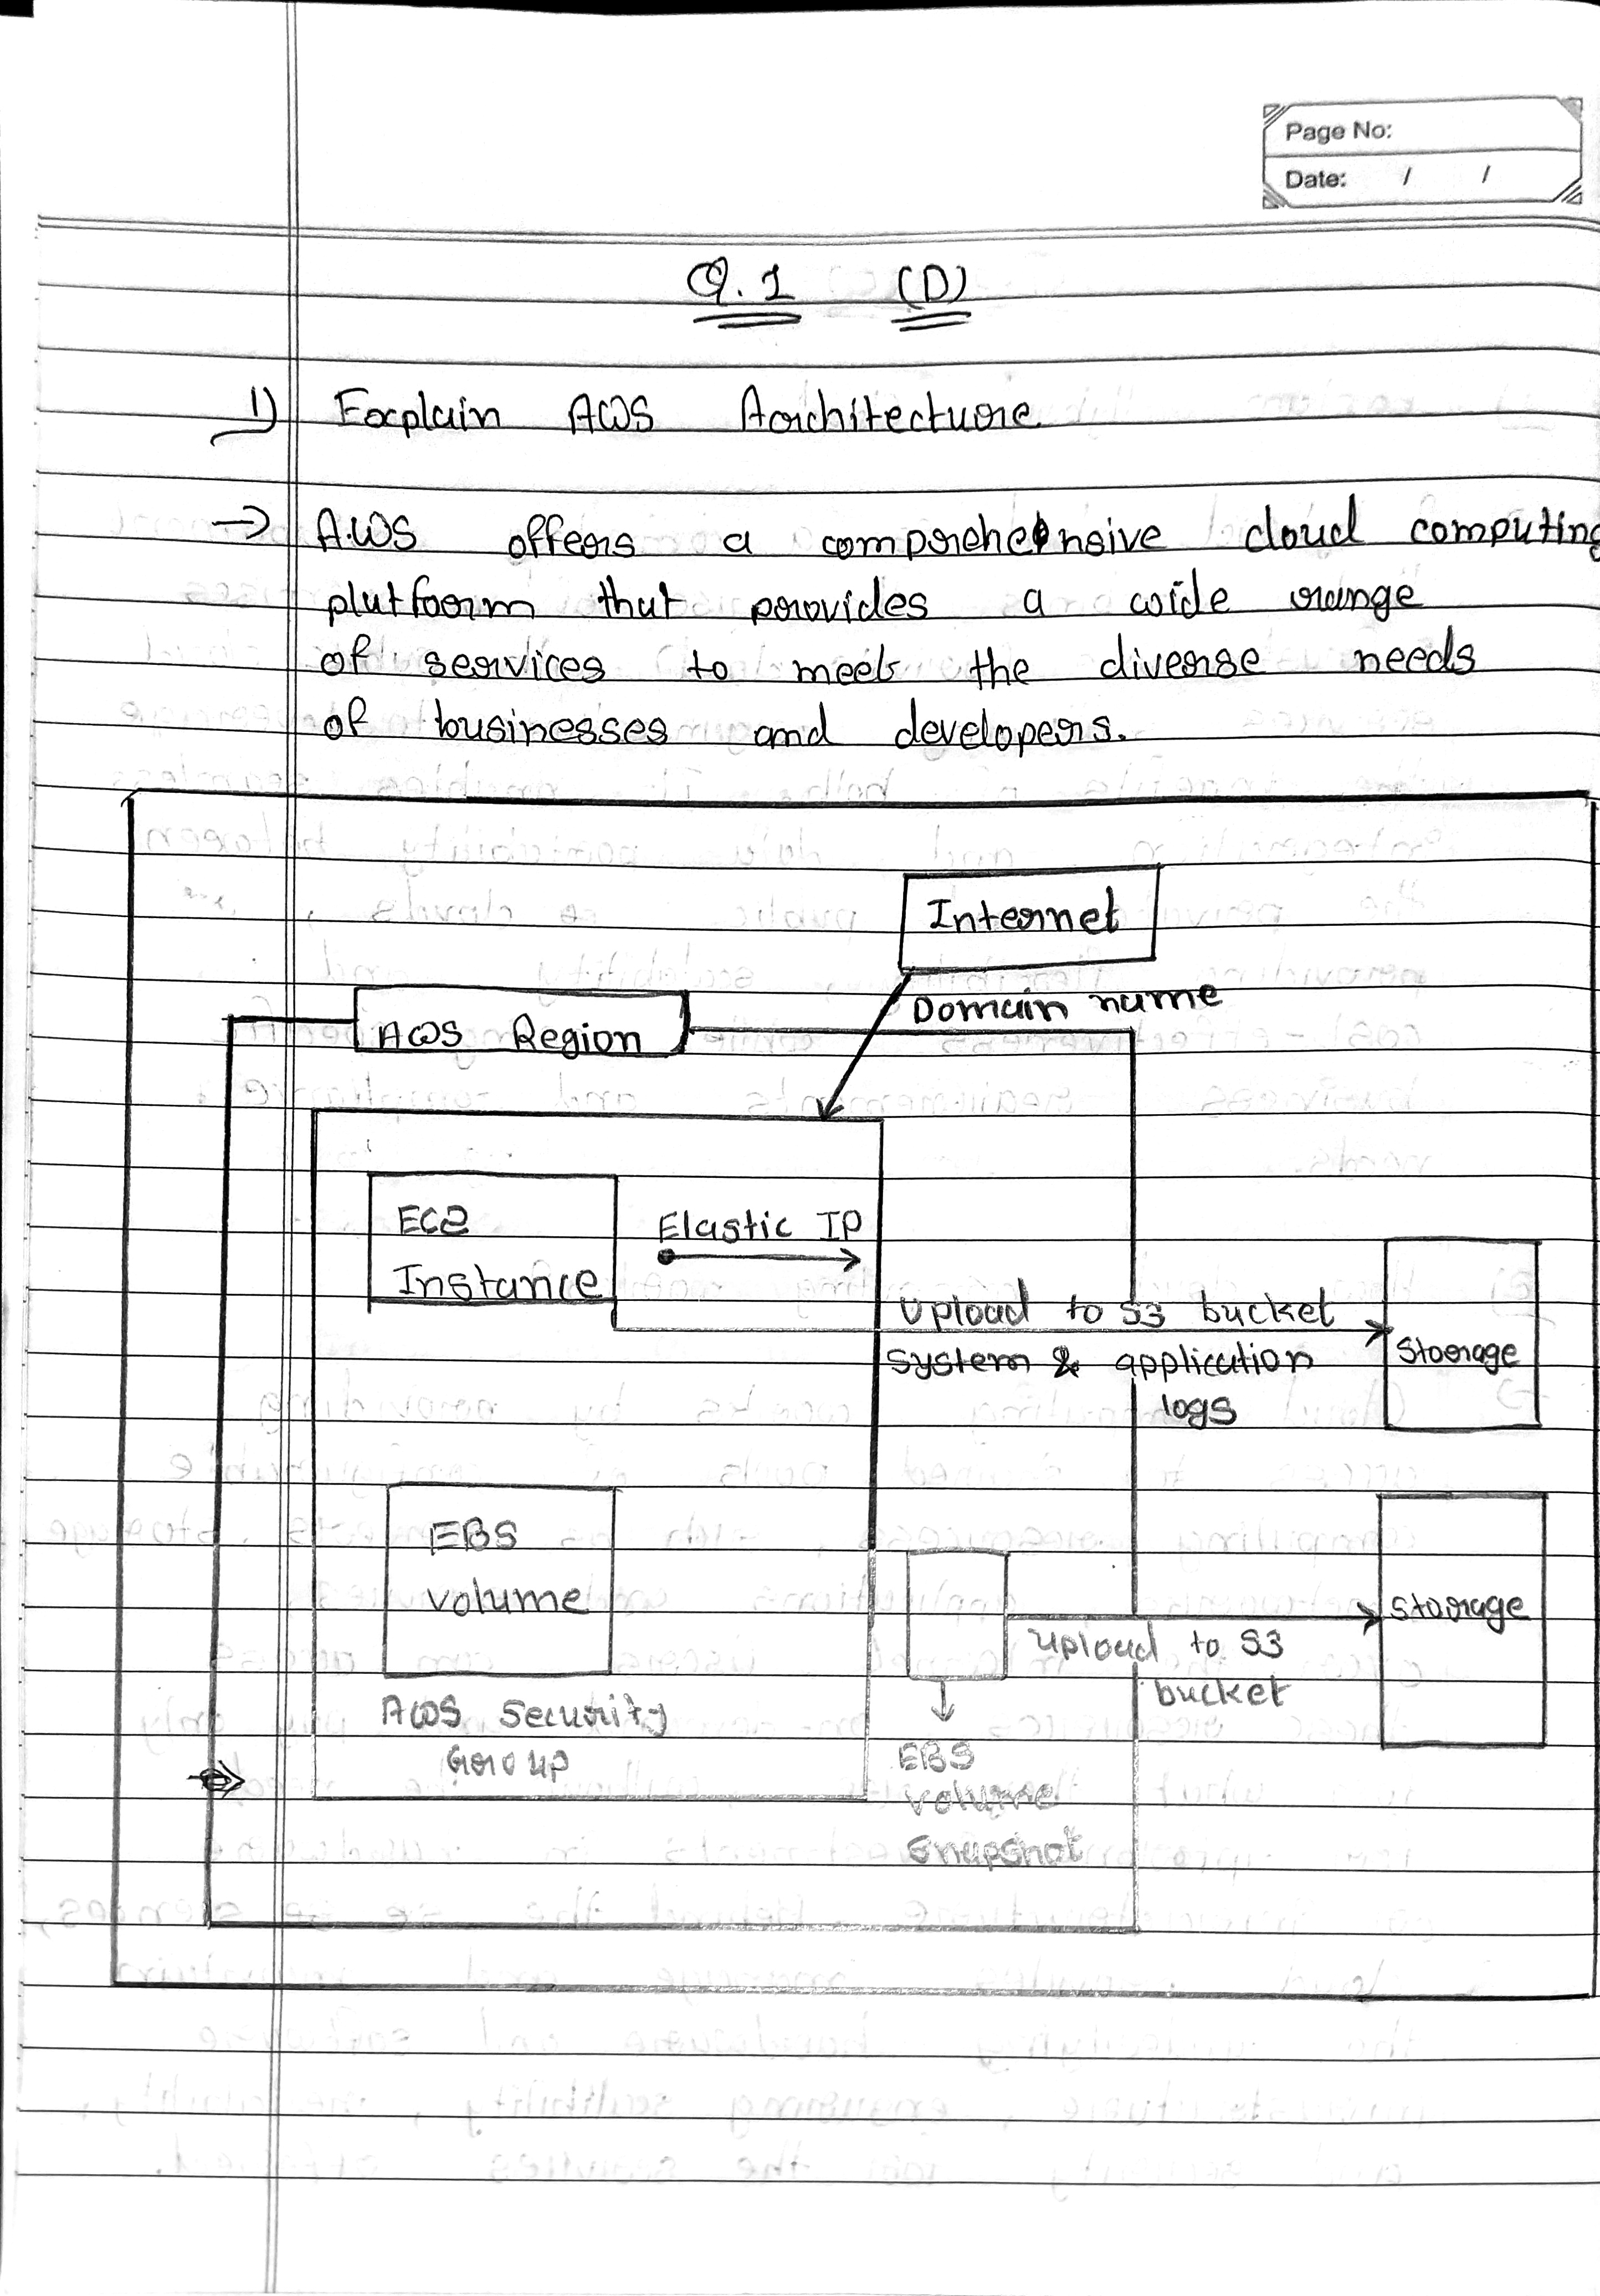 Page No:
Date: / /
Q.1 (D)
1) Explain AWS Architecture
→ AWS offers a comprehensive cloud computing
platform that provides a wide range
of services to meet the diverse needs
of businesses and developers.
Internet
Domain name
AWS Region
EC2
Instance
Elastic IP
Upload to S3 bucket
system & application
logs
Storage
EBS
volume
AWS Security
Group
Upload to S3
bucket
Storage
EBS
volume
Snapshot